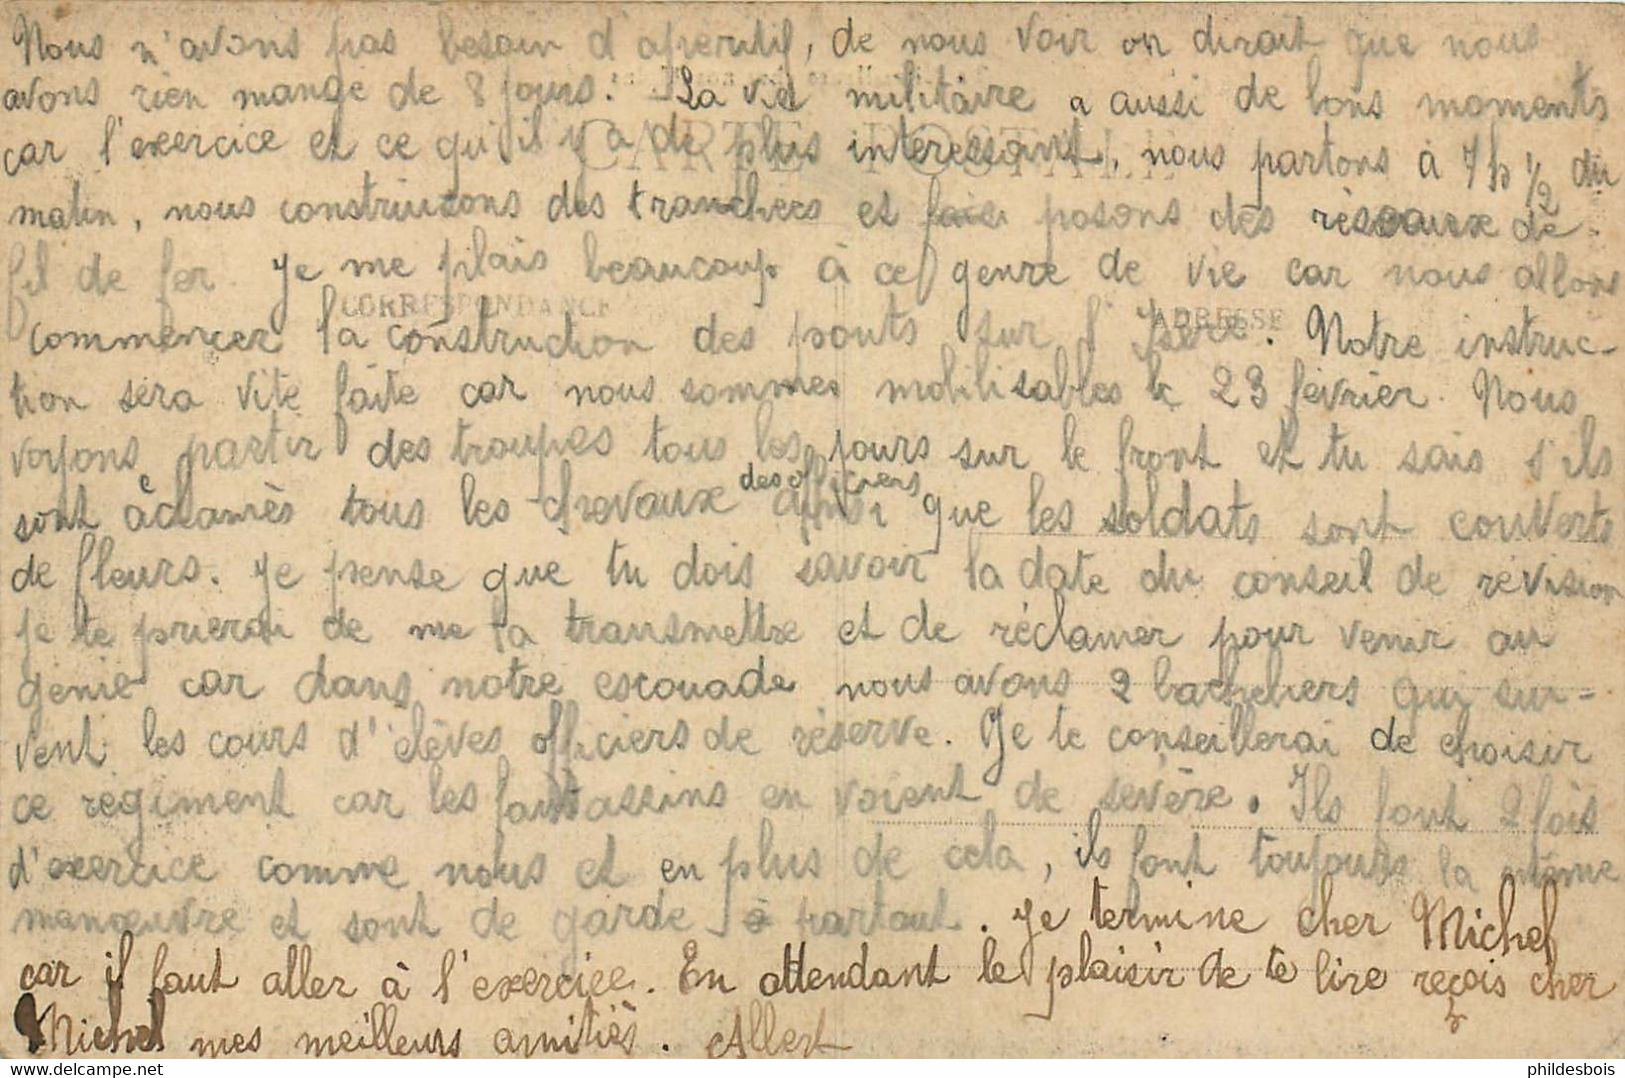 Nous n'avons pas besoin d'apéritif, de nous voir on dirait que nous
avons rien mangé de 8 jours. La vie militaire a aussi de bons moments
car l'exercice et ce qu'il y a de plus interessant, nous partons à 7h 1/2 du
matin, nous construisons des tranchées et posons des réseaux de
fil de fer. Je me plais beaucoup à ce genre de vie car nous allons
commencer la construction des ponts sur l'Isère. Notre instruc-
tion sera vite faite car nous sommes mobilisables le 23 février. Nous
voyons partir des troupes tous les jours sur le front et tu sais s'ils
sont acclamès tous les chevaux des officiers ainsi que les soldats sont couverts
de fleurs. Je pense que tu dois savoir la date du conseil de révision
je te prierai de me la transmettre et de réclamer pour venir au
génie car dans notre escouade nous avons 2 bacheliers qui sui-
vent les cours d'élèves officiers de réserve. Je te conseillerai de choisir
ce regiment car les fantassins en voient de sévère. Ils font 2 fois
d'exercice comme nous et en plus de cela, ils font toujours la même
manœuvre et sont de garde à partout. Je termine cher Michel
car il faut aller à l'exercice. En attendant le plaisir de te lire reçois cher
Michel mes meilleurs amitiés. Albert
CARTE POSTALE
CORRESPONDANCE
ADRESSE
phildesbois